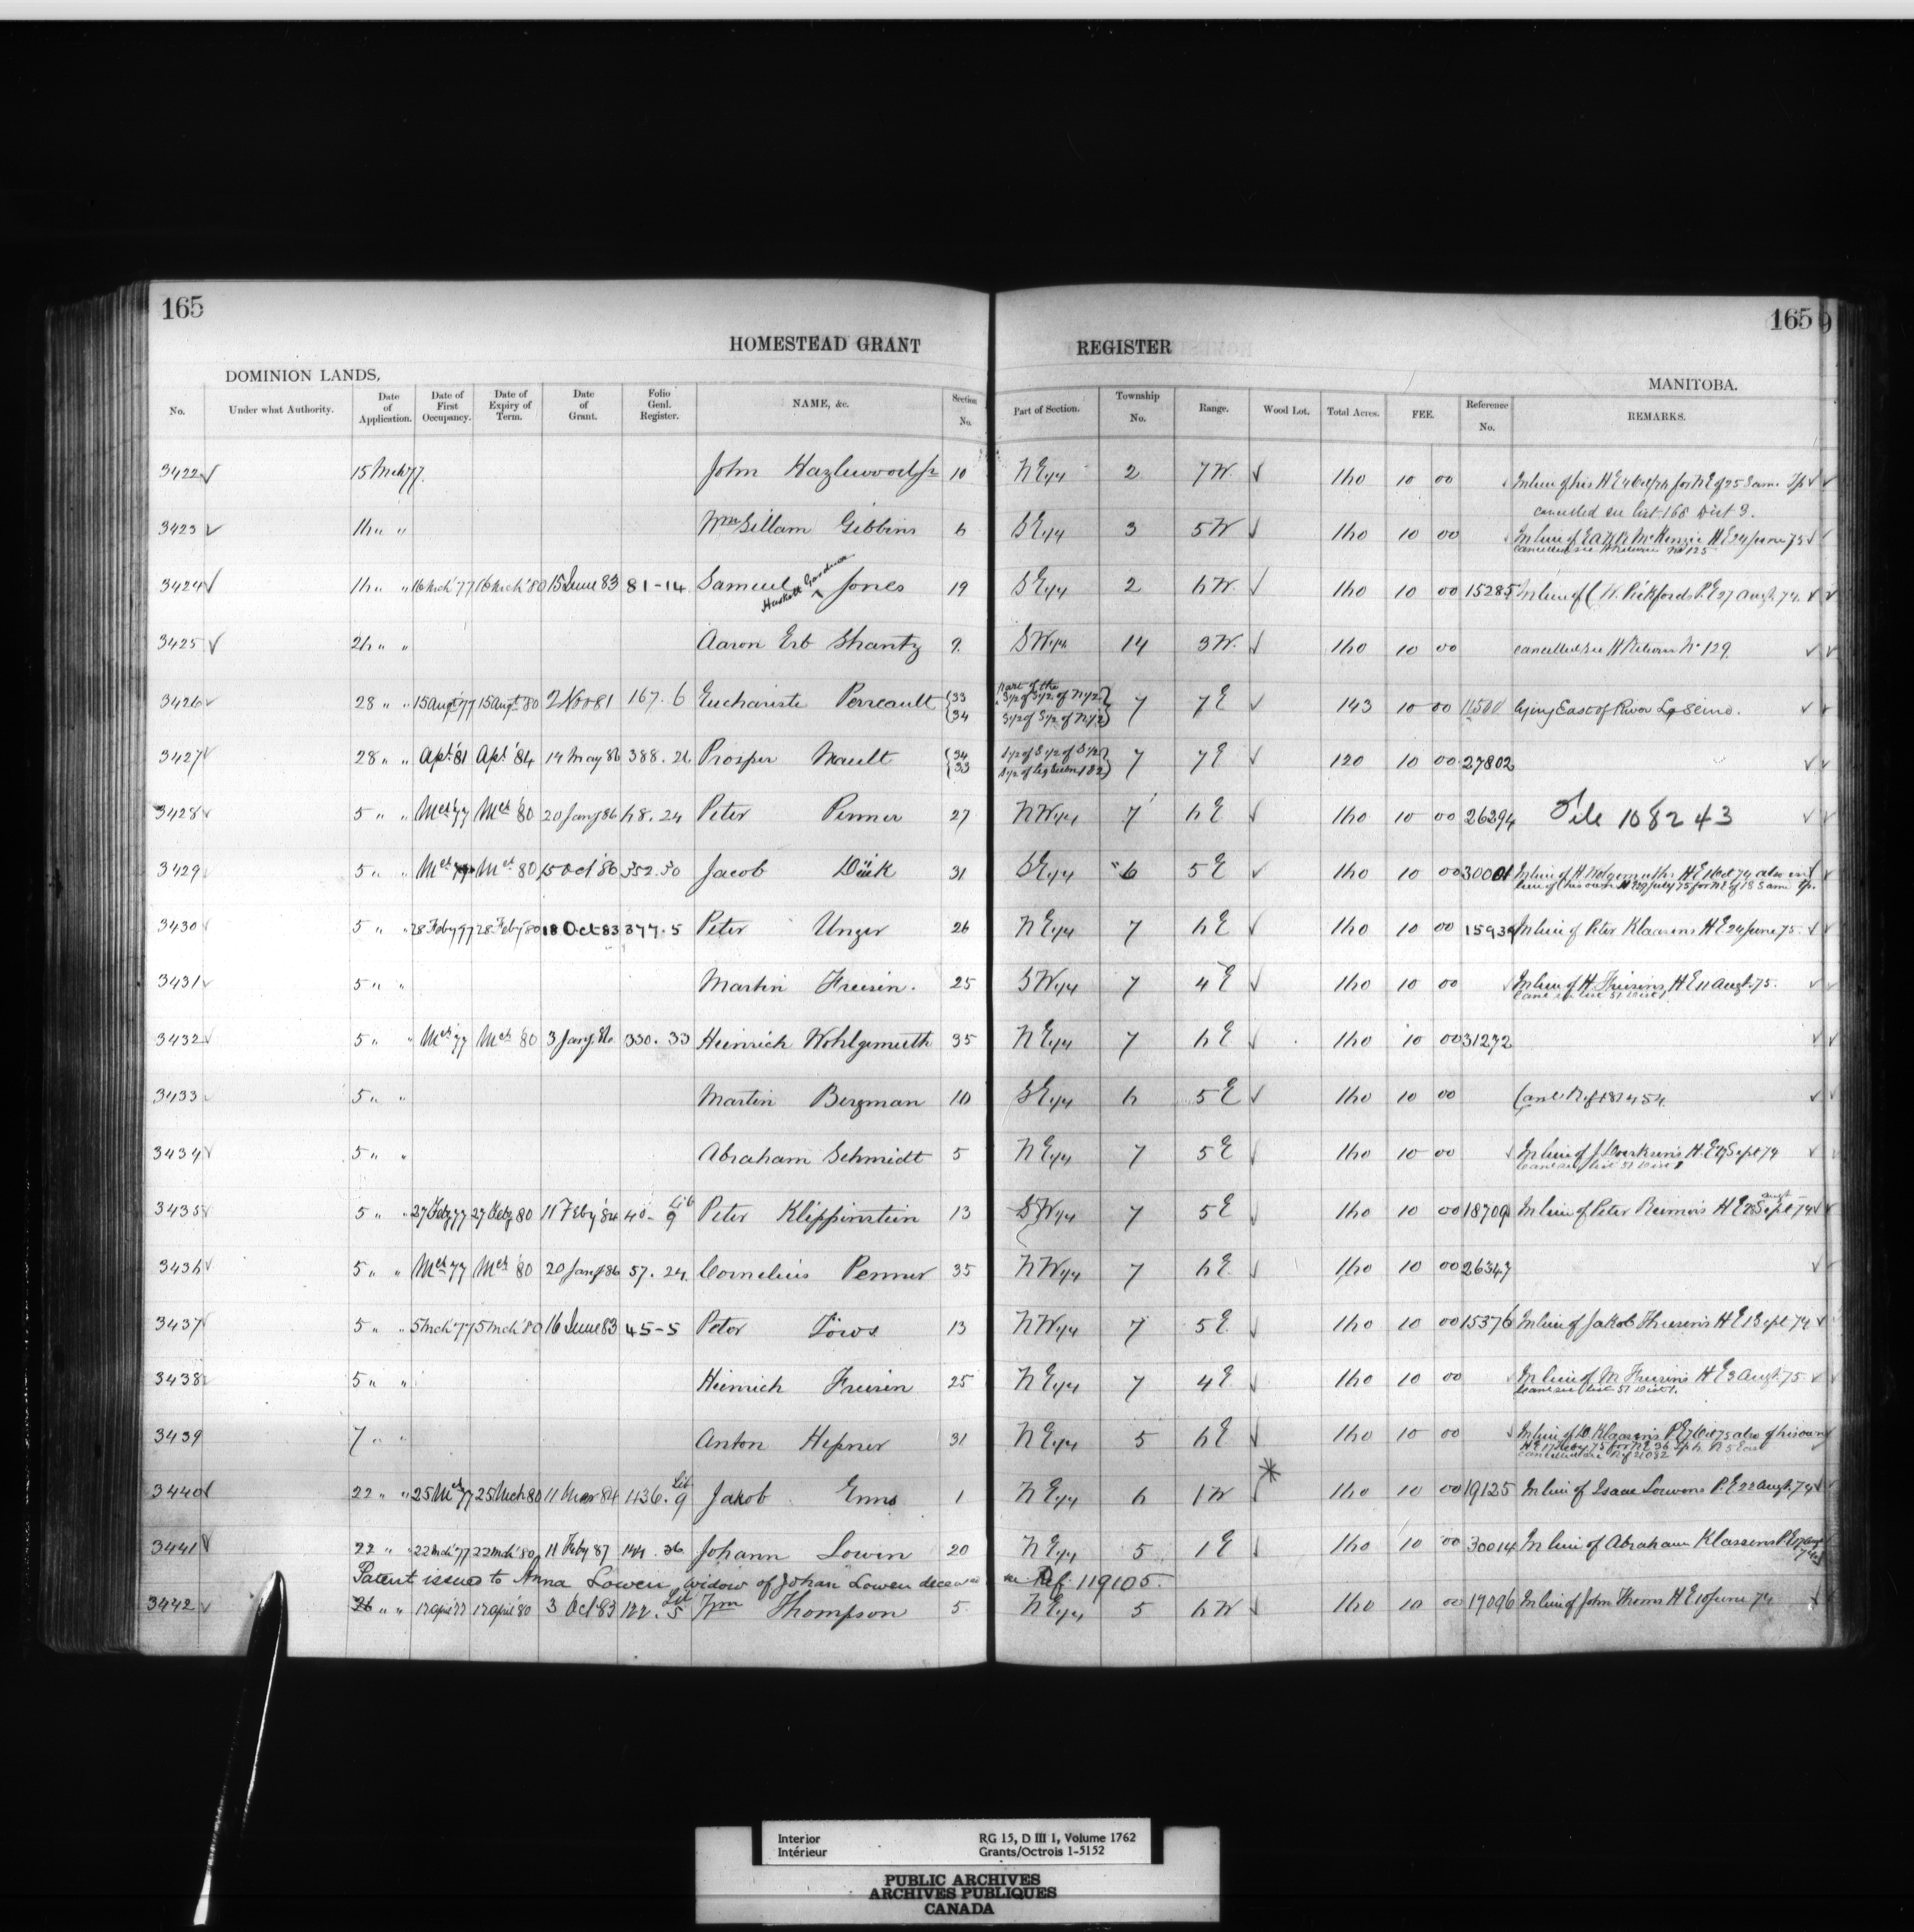 165
165
HOMESTEAD GRANT REGISTER
DOMINION LANDS, MANITOBA.
No. Under what Authority. Date of Application. Date of First Occupancy. Date of Expiry of Term. Date of Grant. Folio Genl. Register. NAME, &c. Section No. Part of Section. Township No. Range. Wood Lot. Total Acres. FEE. Reference No. REMARKS.
3422 15 Mch 77. John Hazlewood Jr 10 N E 1/4 2 7 W. 160 10 00 In lieu of his H E for N E of 25 Same Tp
cancelled see List 168 Dist 3.
3423 16 " " Wm Sillam Gibbins 6 S E 1/4 3 5 W 160 10 00 In lieu of McKenzie H E 24 June 75
3424 16 " " 16 Mch '77 16 Mch '80 15 June 83 81-14 Samuel Haskett Gardner Jones 19 S E 1/4 2 6 W. 160 10 00 15285 In lieu of C. W. Pickfords P. E 27 Augt. 74.
3425 26 " " Aaron Erb Shantz 9. S W 1/4 14 3 W. 160 10 00 cancelled see H Return No 129
3426 28 " " 15 Augt 77 15 Augt 80 2 Nov 81 167. 6 Euchariste Perreault {33 34 part of the S 1/2 of S 1/2 of N 1/2 S 1/2 of S 1/2 of N 1/2 7 7 E 143 10 00 11500 lying East of River La Seine.
3427 28 " " Apl. '81 Apl. '84 14 May 86 388. 21 Prosper Nault {34 33 S 1/2 of S 1/2 7 7 E 120 10 00 27802
3428 5 " " Mch 77 Mch '80 20 Jany 86 68. 24 Peter Penner 27 N W 1/4 7 6 E 160 10 00 26394 File 108243
3429 5 " " Mch 77 Mch 80 15 Oct 86 352. 30 Jacob Dück 31 S E 1/4 6 5 E 160 10 00 30001 In lieu of H Wolgemuths H E 1 Oct 74 also in
lieu of his own H E 29 July 75 for N E of 18 Same Tp.
3430 5 " " 28 Feby 77 28 Feby '80 18 Oct 83 377. 5 Peter Unger 26 N E 1/4 7 6 E 160 10 00 15934 In lieu of Peter Klaasens H E 24 June 75.
3431 5 " " Martin Friesin. 25 S W 1/4 7 4 E 160 10 00 In lieu of H. Friesens H E 11 Augt. 75.
3432 5 " " Mch 77 Mch 80 3 Jany 330. 33 Heinrich Wohlgemuth 35 N E 1/4 7 6 E 160 10 00 31272
3433 5 " " Martin Bergman 10 S E 1/4 6 5 E 160 10 00 Canc Ref 181454
3434 5 " " Abraham Schmidt 5 N E 1/4 7 5 E 160 10 00 In lieu of J. H. E Sept 74
3435 5 " " 27 Feby 77 27 Feby 80 11 Feby '84 40- Lib 9 Peter Klippinstein 13 S W 1/4 7 5 E 160 10 00 18709 In lieu of Peter Reimers H E 28 Augt 74
3436 5 " " Mch 77 Mch '80 20 Jany 86 57. 24. Cornelius Penner 35 N W 1/4 7 6 E. 160 10 00 26347
3437 5 " " 5 Mch '77 5 Mch '80 16 June 83 45-5 Peter Töws 13 N W 1/4 7 5 E 160 10 00 15376 In lieu of Jakob Friesens H E 1 Sept 74
3438 5 " " Heinrich Friesin 25 N E 1/4 7 4 E 160 10 00 In lieu of M. Friesins H E 3 Augt. 75
3439 7 " " Anton Hepner 31 N E 1/4 5 6 E 160 10 00 In lieu of D. Klaasens P E 7 Oct 75 also of his own
3440 22 " " 25 Mch 77 25 Mch 80 11 Mar 84 436. Lib 9 Jakob Enns 1 N E 1/4 6 1 W * 160 10 00 19125 In lieu of Isaac Loewens P. E 22 Augt. 74
3441 22 " " 22 Mch '77 22 Mch '80 11 Feby 87 144. 36 Johann Lowen 20 N E 1/4 5 1 E 160 10 00 30014 In lieu of Abraham Klassens P E
Patent issued to Anna Lowen, widow of Johan Lowen deceased see Ref. 119105.
3442 26 " " 17 April '77 17 April '80 3 Oct 83 122. Lib 5 Wm Thompson 5. N E 1/4 5 6 W 160 10 00 19096 In lieu of John Thoms H E 10 June 74
Interior
Intérieur
RG 15, D III 1, Volume 1762
Grants/Octrois 1-5152
PUBLIC ARCHIVES
ARCHIVES PUBLIQUES
CANADA